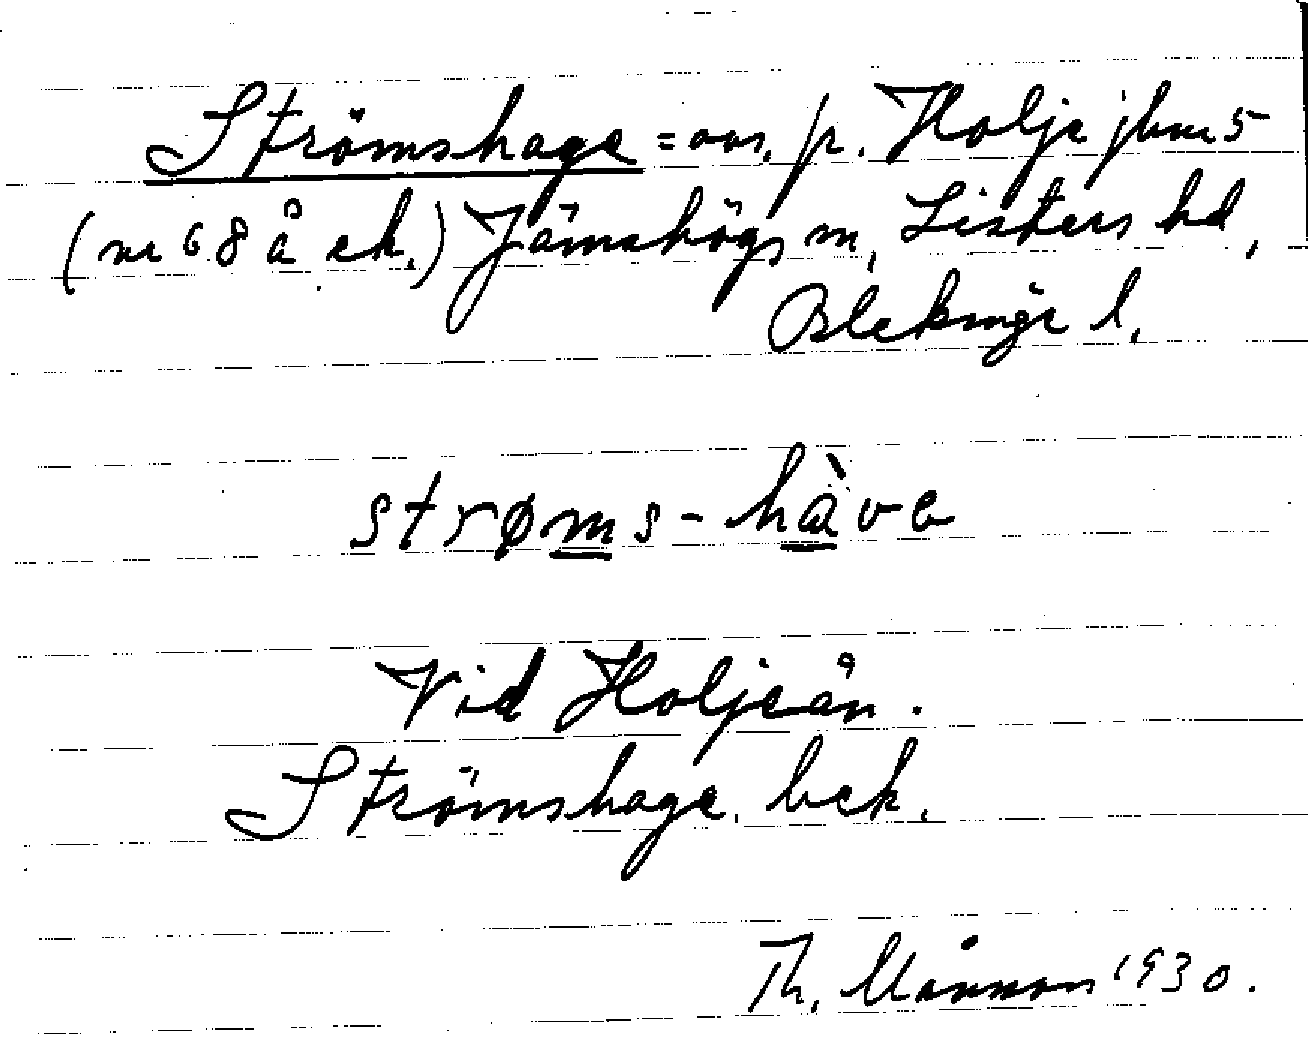 Strömshage = avs. p. Holje jbnr 5
(nr 68 å ek.) Jämshögs sn, Listers hd,
Blekinge l.
strøms-hàve
Vid Holjeån.
Strömshage, bek.
Th. Månsson 1930.